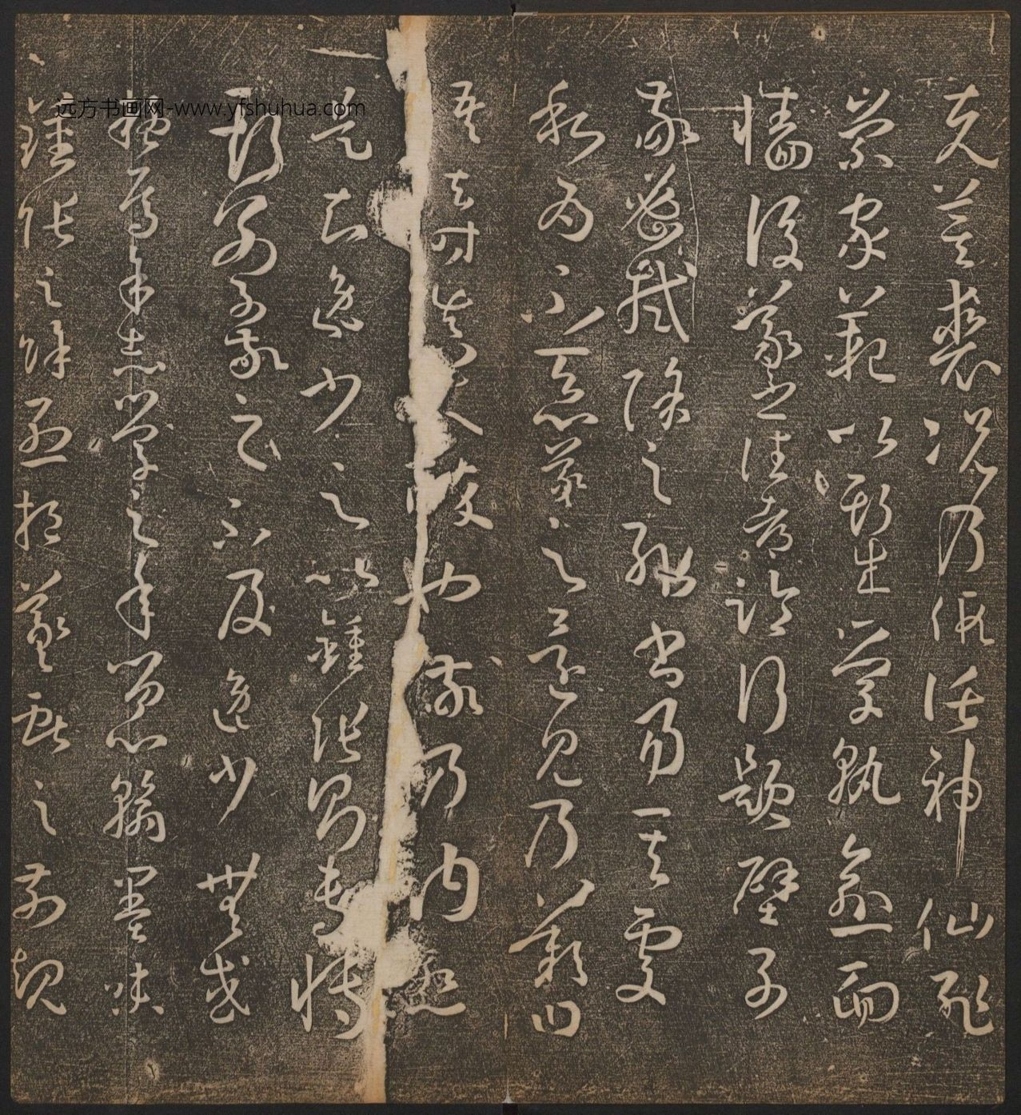 克箕裘況乃假託神仙恥
崇家範以斯成學孰愈面
墻後羲之往都臨行題壁子
敬密拭除之輒書易其處
私為不惡羲之還見乃歎曰
吾去時真大醉也敬乃內慙
是知逸少之比鍾張則專博
斯別子敬之不及逸少無或
疑焉余志學之年留心翰墨味
鍾張之餘烈挹羲獻之前規
远方书画网-www.yfshuhua.com